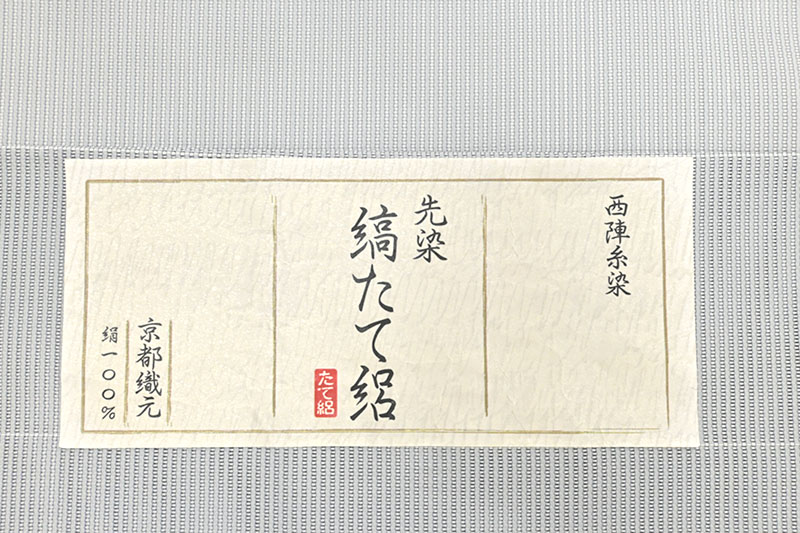 西陣糸染
先染
縞たて絽
たて絽
京都織元
絹一〇〇%